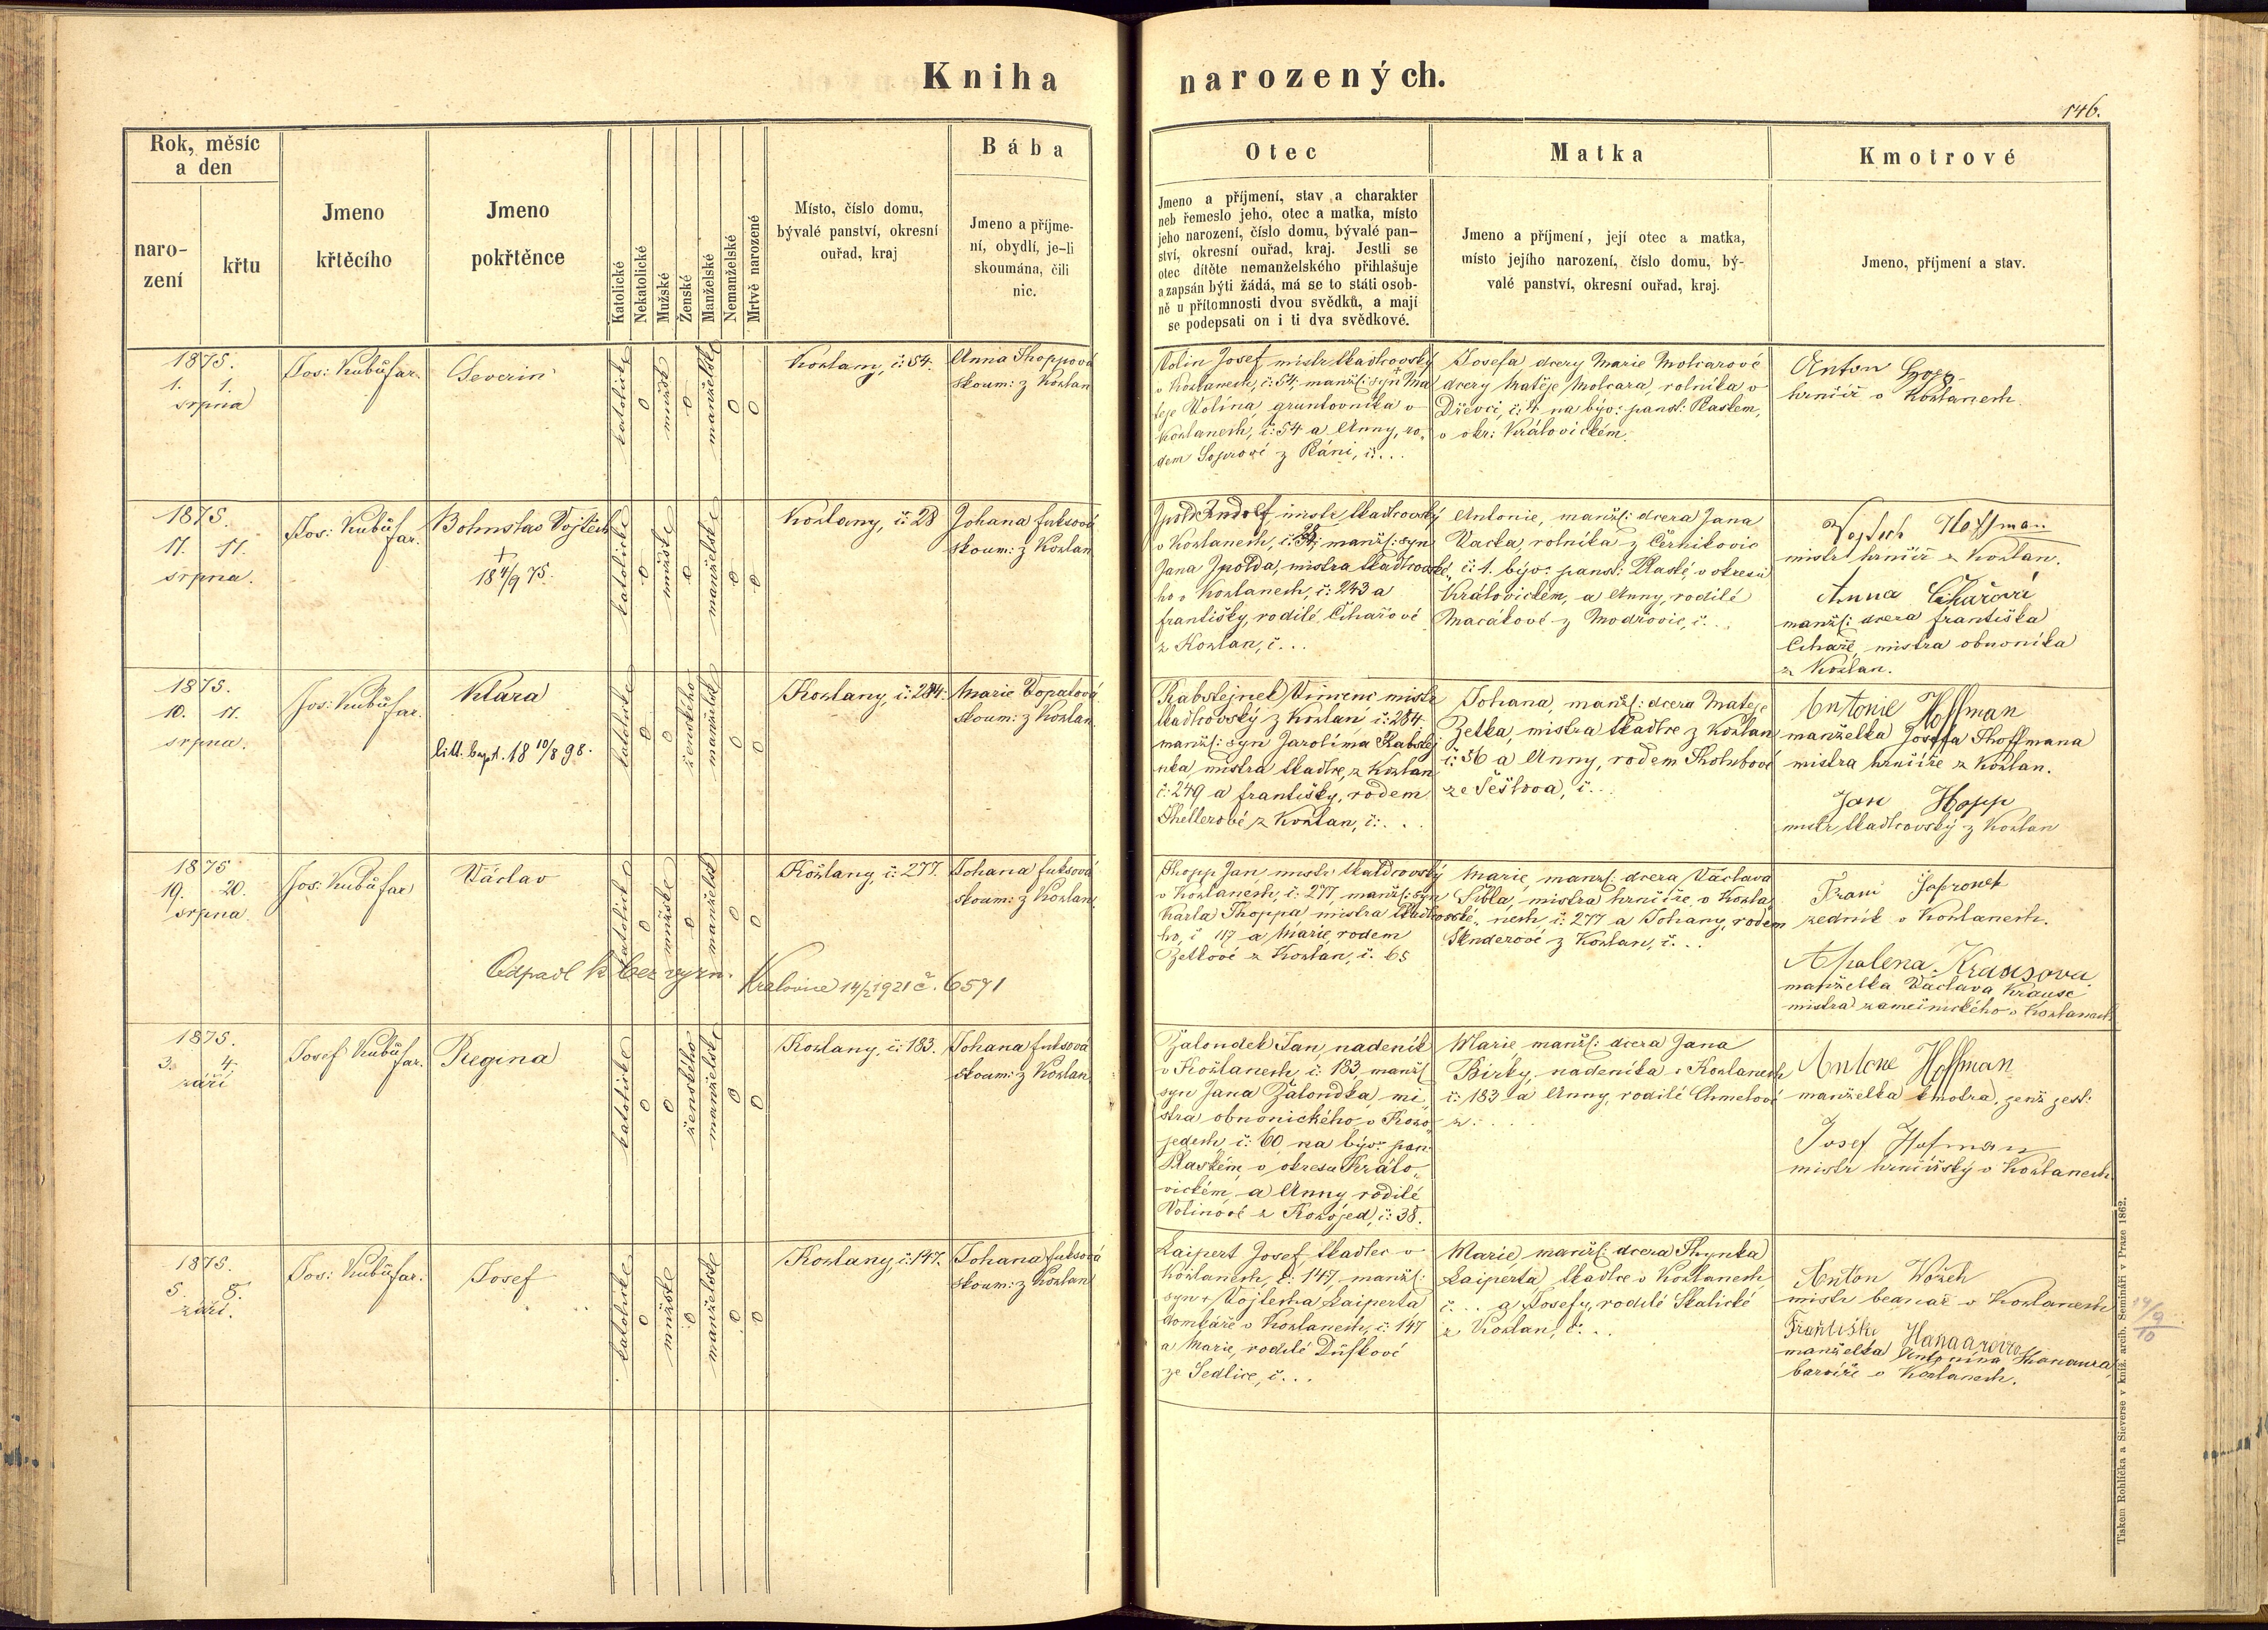 Kniha narozených.
146.
Rok, měsíc
a den
naro-
zení
křtu
Jmeno
křtěcího
Jmeno
pokřtěnce
Katolické
Nekatolické
Mužské
Ženské
Manželské
Nemanželské
Mrtvě narozené
Místo, číslo domu,
bývalé panství, okresní
ouřad, kraj
Bába
Jmeno a příjme-
ní, obydlí, je-li
skoumána, čili
nic.
Otec
Jmeno a příjmení, stav a charakter
neb řemeslo jeho, otec a matka, místo
jeho narození, číslo domu, bývalé pan-
ství, okresní ouřad, kraj. Jestli se
otec dítěte nemanželského přihlašuje
a zapsán býti žádá, má se to státi osob-
ně u přítomnosti dvou svědků, a mají
se podepsati on i ti dva svědkové.
Matka
Jmeno a příjmení, její otec a matka,
místo jejího narození, číslo domu, bý-
valé panství, okresní ouřad, kraj.
Kmotrové
Jmeno, příjmení a stav.
1875.
1. 1.
srpna
Jos: Kubů far.
Severin
katolické
0
mužské
0
manželské
0
0
Kožlany, č: 54.
Anna Thoppová
skoum: z Kožlan
Volín Josef, mistr tkadlcovský
v Kožlanech, č: 54, manžl: syn Ma
těje Volína, gruntovníka v
Kožlanech, č: 54 a Anny, ro„
dem z Pláni, č...
Josefa, dcery Marie Molcarové
dcery Matěje Molcara, rolníka v
Dřevci, č: 4. na býv: panst: Plaském,
v okr: Královickém.
Anton
hrnčíř v Kožlanech.
1875.
11. 11.
srpna.
Jos: Kubů far.
Bohuslav Vojtěch
+
18 4/9 75.
katolické
0
mužské
0
manželské
0
0
Kožlany, č: 28
Johana Fuksová
skoum: z Kožlan
Ipold Rudolf, mistr tkadlcovský
v Kožlanech, č: 28, manžl: syn
Jana Ipolda, mistra tkadlcovské„
ho v Kožlanech, č: 243 a
Františky, rodilé Cihařové
z Kožlan, č...
Antonie, manžl: dcera Jana
Vacka, rolníka z Černíkovic
č: 1. býv: panst: Plaské, v okresu
Královickém, a Anny, rodilé
Macákové z Modřovic, č...
Vojtěch Hoffman
mistr hrnčíř z Kožlan.
Anna Cihařová
manžl: dcera Františka
Cihaře, mistra obuvníka
z Kožlan.
1875.
10. 11.
srpna.
Jos: Kubů far.
Klára
litt. bapt. 18 10/8 98.
katolické
0
0
ženského
manželské
0
0
Kožlany, č: 284.
Marie Vopatová
skoum: z Kožlan
Rabštejnek Vincenc mistr
tkadlcovský z Kožlan č: 284
manžl: syn Jarolíma Rabštej
nka mistra tkadlce, z Kožlan
č: 249 a Františky, rodem
Thellerové z Kožlan, č:...
Johana, manžl: dcera Matěje
Zetka, mistra tkadlce z Kožlan
č: 56 a Anny, rodem Tholubové
ze Šešťova, č...
Antonie Hoffman
manželka Josefa Thoffmana
mistra hrnčíře z Kožlan.
Jan Hopp
mistr tkadlcovský z Kožlan
1875
19. 20.
srpna
Jos: Kubů far
Václav
katolické
0
mužské
0
manželské
0
0
Kožlany, č: 277.
Johana Fuksová
skoum: z Kožlan
Odpadl k bez vyzn. Kralovice 14/2 1921 č. 6571
Thopp Jan, mistr tkadlcovský
v Kožlanech, č: 277, manžl: syn
Karla Thoppa mistra tkadlcovské„
ho, č 117 a Marie, rodem
Zetkové z Kožlan, č: 65
Marie, manžl: dcera Václava
Šibla, mistra hrnčíře v Kožla„
nech, č: 277 a Johany, rodem
z Kožlan, č...
Franc Šofronek
zedník v Kožlanech.
Apalena Krausova
manželka Václava Krause
mistra zamečnického v Kožlanech
1875.
3. 4.
září
Josef Kubů far.
Regina
katolické
0
0
ženského
manželské
0
0
Kožlany, č: 183.
Johana Fuksová
skoum: z Kožlan
Žaloudek Jan, nadeník
v Kožlanech, č: 183 manžl
syn Jana Žaloudka mi„
stra obuvnického v Kozo„
jedech č: 60 na býv: pan:
Plaském v okresu Králo„
vickém, a Anny, rodilé
Volínové z Kozojed, č: 38.
Marie manžl: dcera Jana
Bírky, nadeníka v Kožlanech
č: 183 a Anny, rodilé Chmelové
z....
Antone Hoffman
manželka kmotra, jenž jest:
Josef Hofman
mistr hrnčířský v Kožlanech
1875.
5. 8.
září.
Jos: Kubů far.
Josef
katolické
0
mužské
0
manželské
0
0
Kožlany, č: 147.
Johana Fuksová
skoum: z Kožlan
Laipert Josef tkadlec v
Kožlanech, č: 147, manžl:
syn + Vojtěcha Laiperta
domkáře v Kožlanech, č: 147
a Marie, rodilé Duškové
ze Sedlice, č...
Marie, manžl: dcera Thynka
Laiperta, tkadlce v Kožlanech
č... a Josefy, rodilé Skalické
z Kožlan, č...
Anton Wožeh
mistr bednář v Kožlanech
Františka Hanaurova
manželka Antonína Hanaura,
barvíře v Kožlanech.
14/9
10
Tiskem Rohlíčka a Sieverse v kníž. arcib. Semináři v Praze 1862.